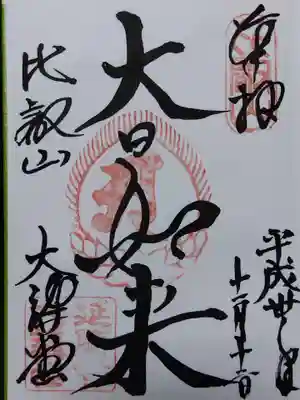 奉拝
平成廿七年
十一月十二日
大日如来
比叡山
大講堂